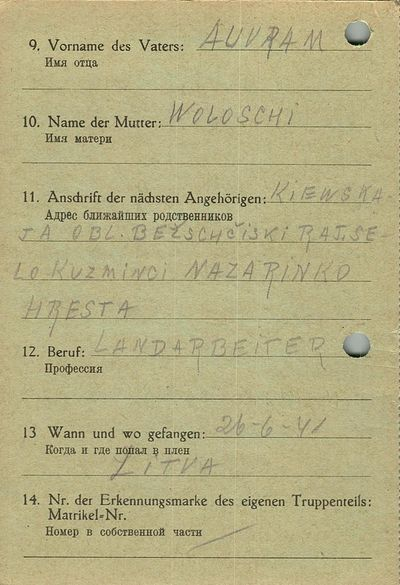 9. Vorname des Vaters: AUVRAM
Имя отца
10. Name der Mutter: WOLOSCHI
Имя матери
11. Anschrift der nächsten Angehörigen: KIEWSKA-
Адрес ближайших родственников
JA OBL. RAJ.SE-
LO KUZMINCI NAZARINKO
HRESTA
12. Beruf: LANDARBEITER
Профессия
13 Wann und wo gefangen: 26-6-41
Когда и где попал в плен
LITVA
14. Nr. der Erkennungsmarke des eigenen Truppenteils:
Matrikel=Nr.
Номер в собственной части